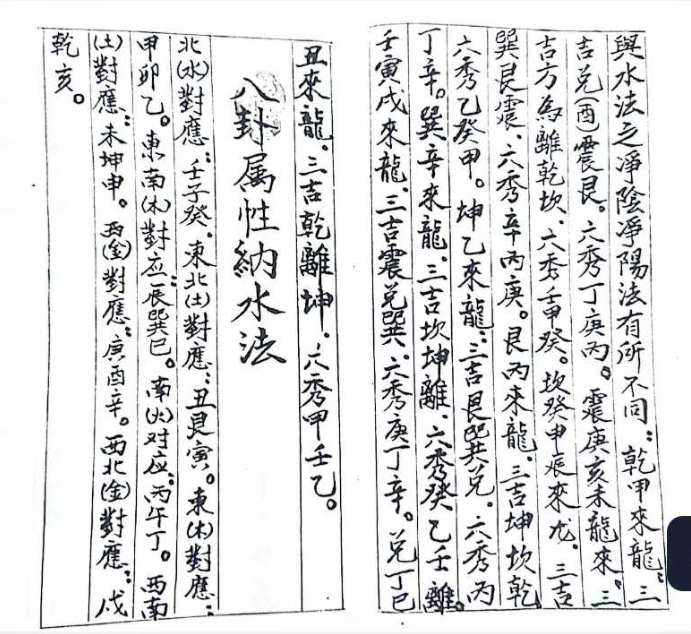 與水法之淨陰淨陽法有所不同：乾甲來龍：三
吉兌(酉)震艮。六秀丁庚丙。震庚亥未龍來。三
吉方為離乾坎、六秀壬甲癸。坎癸申辰來龙、三吉
巽艮震、六秀辛丙庚。艮丙來龍、三吉坤坎乾
六秀乙癸甲。坤乙來龍：三吉艮巽兌、六秀丙
丁辛。巽辛來龍、三吉坎坤離、六秀癸乙壬離。
壬寅戌來龍、三吉震兌巽、六秀庚丁辛。兌丁巳
丑來龍、三吉乾離坤、六秀甲壬乙。
八卦属性納水法
北(水)對應：壬子癸、東北(土)對應：丑艮寅。東(木)對應：
甲卯乙。東南(木)對应：辰巽巳。南(火)对应：丙午丁。西南
(土)對應：未坤申。西(金)對應：庚酉辛。西北(金)對應：戌
乾亥。